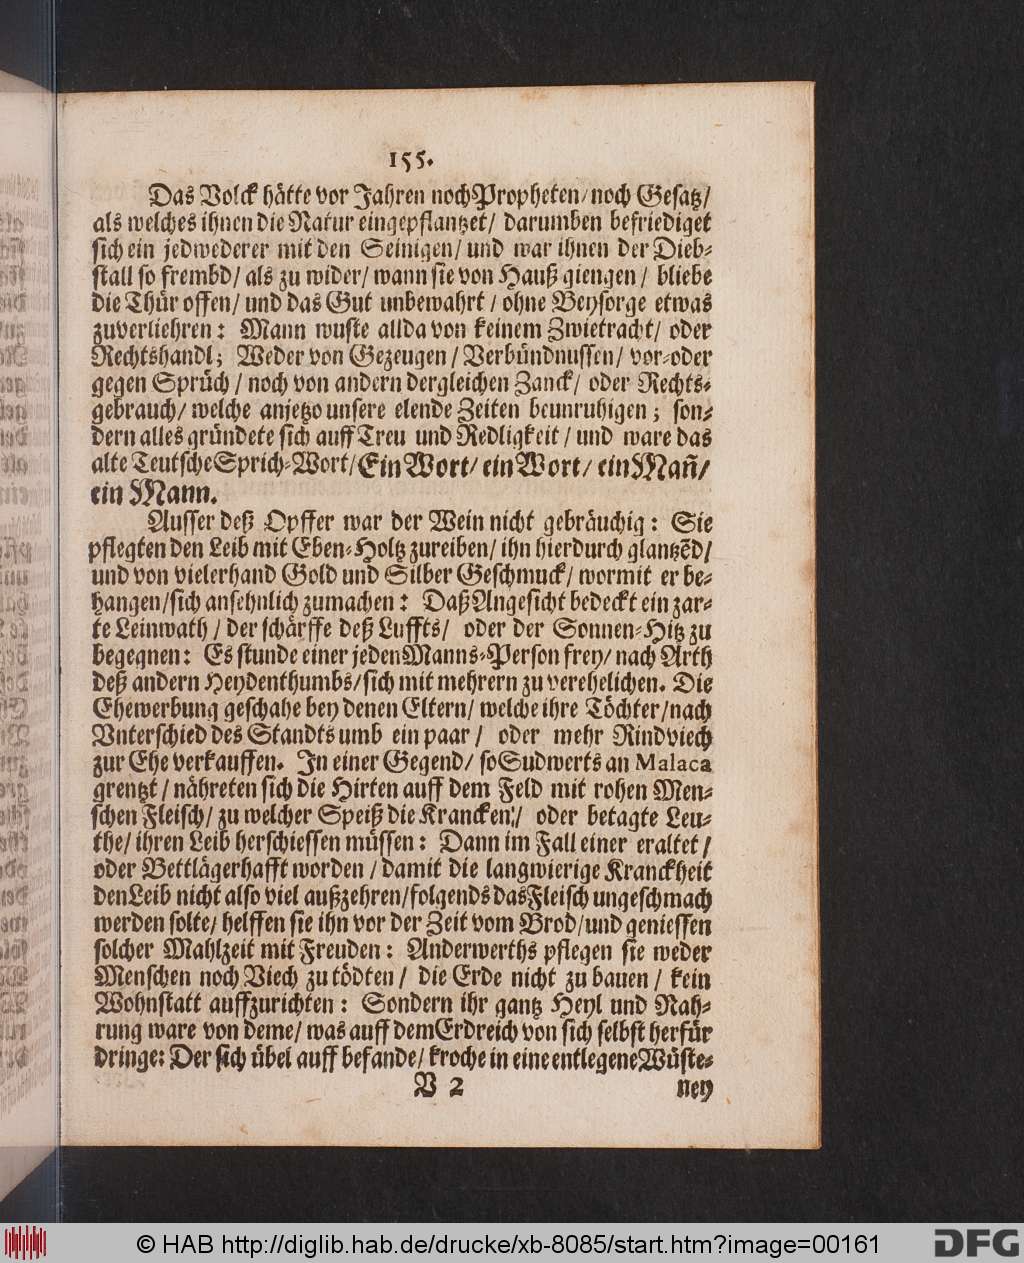 155.
Das Volck hätte vor Jahren noch Propheten/ noch Gesatz/
als welches ihnen die Natur eingepflantzet/ darumben befriediget
sich ein jedwederer mit den Seinigen/ und war ihnen der Dieb-
stall so frembd/ als zu wider/ wann sie von Hauß giengen/ bliebe
die Thür offen/ und das Gut unbewahrt/ ohne Beysorge etwas
zuverliehren: Mann wuste allda von keinem Zwietracht/ oder
Rechtshandl; Weder von Gezeugen/ Verbündnussen/ vor-oder
gegen Sprüch/ noch von andern dergleichen Zanck/ oder Rechts-
gebrauch/ welche anjetzo unsere elende Zeiten beunruhigen; son-
dern alles gründete sich auff Treu und Redligkeit/ und ware das
alte Teutsche Sprich-Wort/ Ein Wort/ ein Wort/ ein Mañ/
ein Mann.
Ausser deß Opffer war der Wein nicht gebräuchig: Sie
pflegten den Leib mit Eben-Holtz zureiben/ ihn hierdurch glantzẽd/
und von vielerhand Gold und Silber Geschmuck/ wormit er be-
hangen/ sich ansehnlich zumachen: Daß Angesicht bedeckt ein zar-
te Leinwath/ der schärffe deß Luffts/ oder der Sonnen-Hitz zu
begegnen: Es stunde einer jeden Manns-Person frey/ nach Arth
deß andern Heydenthumbs/ sich mit mehrern zu verehelichen. Die
Ehewerbung geschahe bey denen Eltern/ welche ihre Töchter/ nach
Vnterschied des Standts umb ein paar/ oder mehr Rindviech
zur Ehe verkauffen. In einer Gegend/ so Sudwerts an Malaca
grentzt/ nähreten sich die Hirten auff dem Feld mit rohen Men-
schen Fleisch/ zu welcher Speiß die Krancken/ oder betagte Leu-
the/ ihren Leib herschiessen müssen: Dann im Fall einer eraltet/
oder Bettlägerhafft worden/ damit die langwierige Kranckheit
den Leib nicht also viel außzehren/ folgends das Fleisch ungeschmach
werden solte/ helffen sie ihn vor der Zeit vom Brod/ und geniessen
solcher Mahlzeit mit Freuden: Anderwerths pflegen sie weder
Menschen noch Viech zu tödten/ die Erde nicht zu bauen/ kein
Wohnstatt auffzurichten: Sondern ihr gantz Heyl und Nah-
rung ware von deme/ was auff dem Erdreich von sich selbst herfür
dringe: Der sich übel auff befande/ kroche in eine entlegene Wüste-
V 2 ney
© HAB http://diglib.hab.de/drucke/xb-8085/start.htm?image=00161
DFG